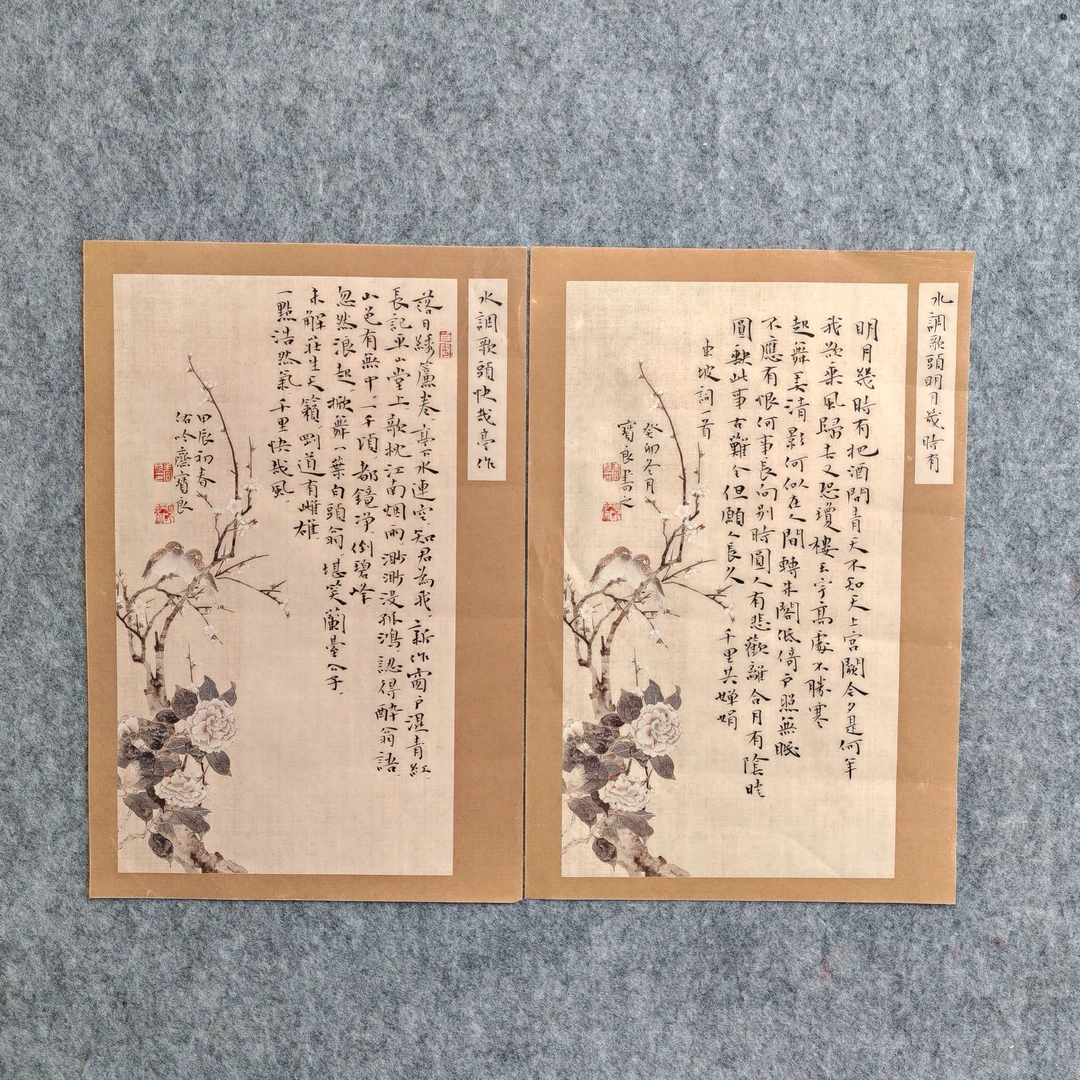 水調歌頭明月幾時有
明月幾時有把酒問青天不知天上宮闕今夕是何年
我欲乘風歸去又恐瓊樓玉宇高處不勝寒
起舞弄清影何似在人間轉朱閣低倚戶照無眠
不應有恨何事長向別時圓人有悲歡離合月有陰晴
圓缺此事古難全但願人長久千里共嬋娟
東坡詞一首
癸卯冬月
賓良書之
水調歌頭快哉亭作
落日繡簾卷亭下水連空知君為我新作窗戶湿青紅
長記平山堂上欹枕江南烟雨渺渺沒孤鴻認得醉翁語
山色有無中一千頃都鏡淨倒碧峰
忽然浪起掀舞一葉白頭翁堪笑蘭臺公子
未解莊生天籟剛道有雌雄
一點浩然氣千里快哉風
甲辰初春
佑吟齋賓良